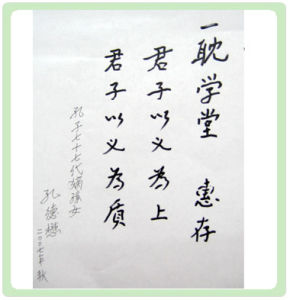 一耽学堂 惠存
君子以义为上
君子以义为质
孔子七十七代嫡孙女
孔德懋
二〇〇七年 秋